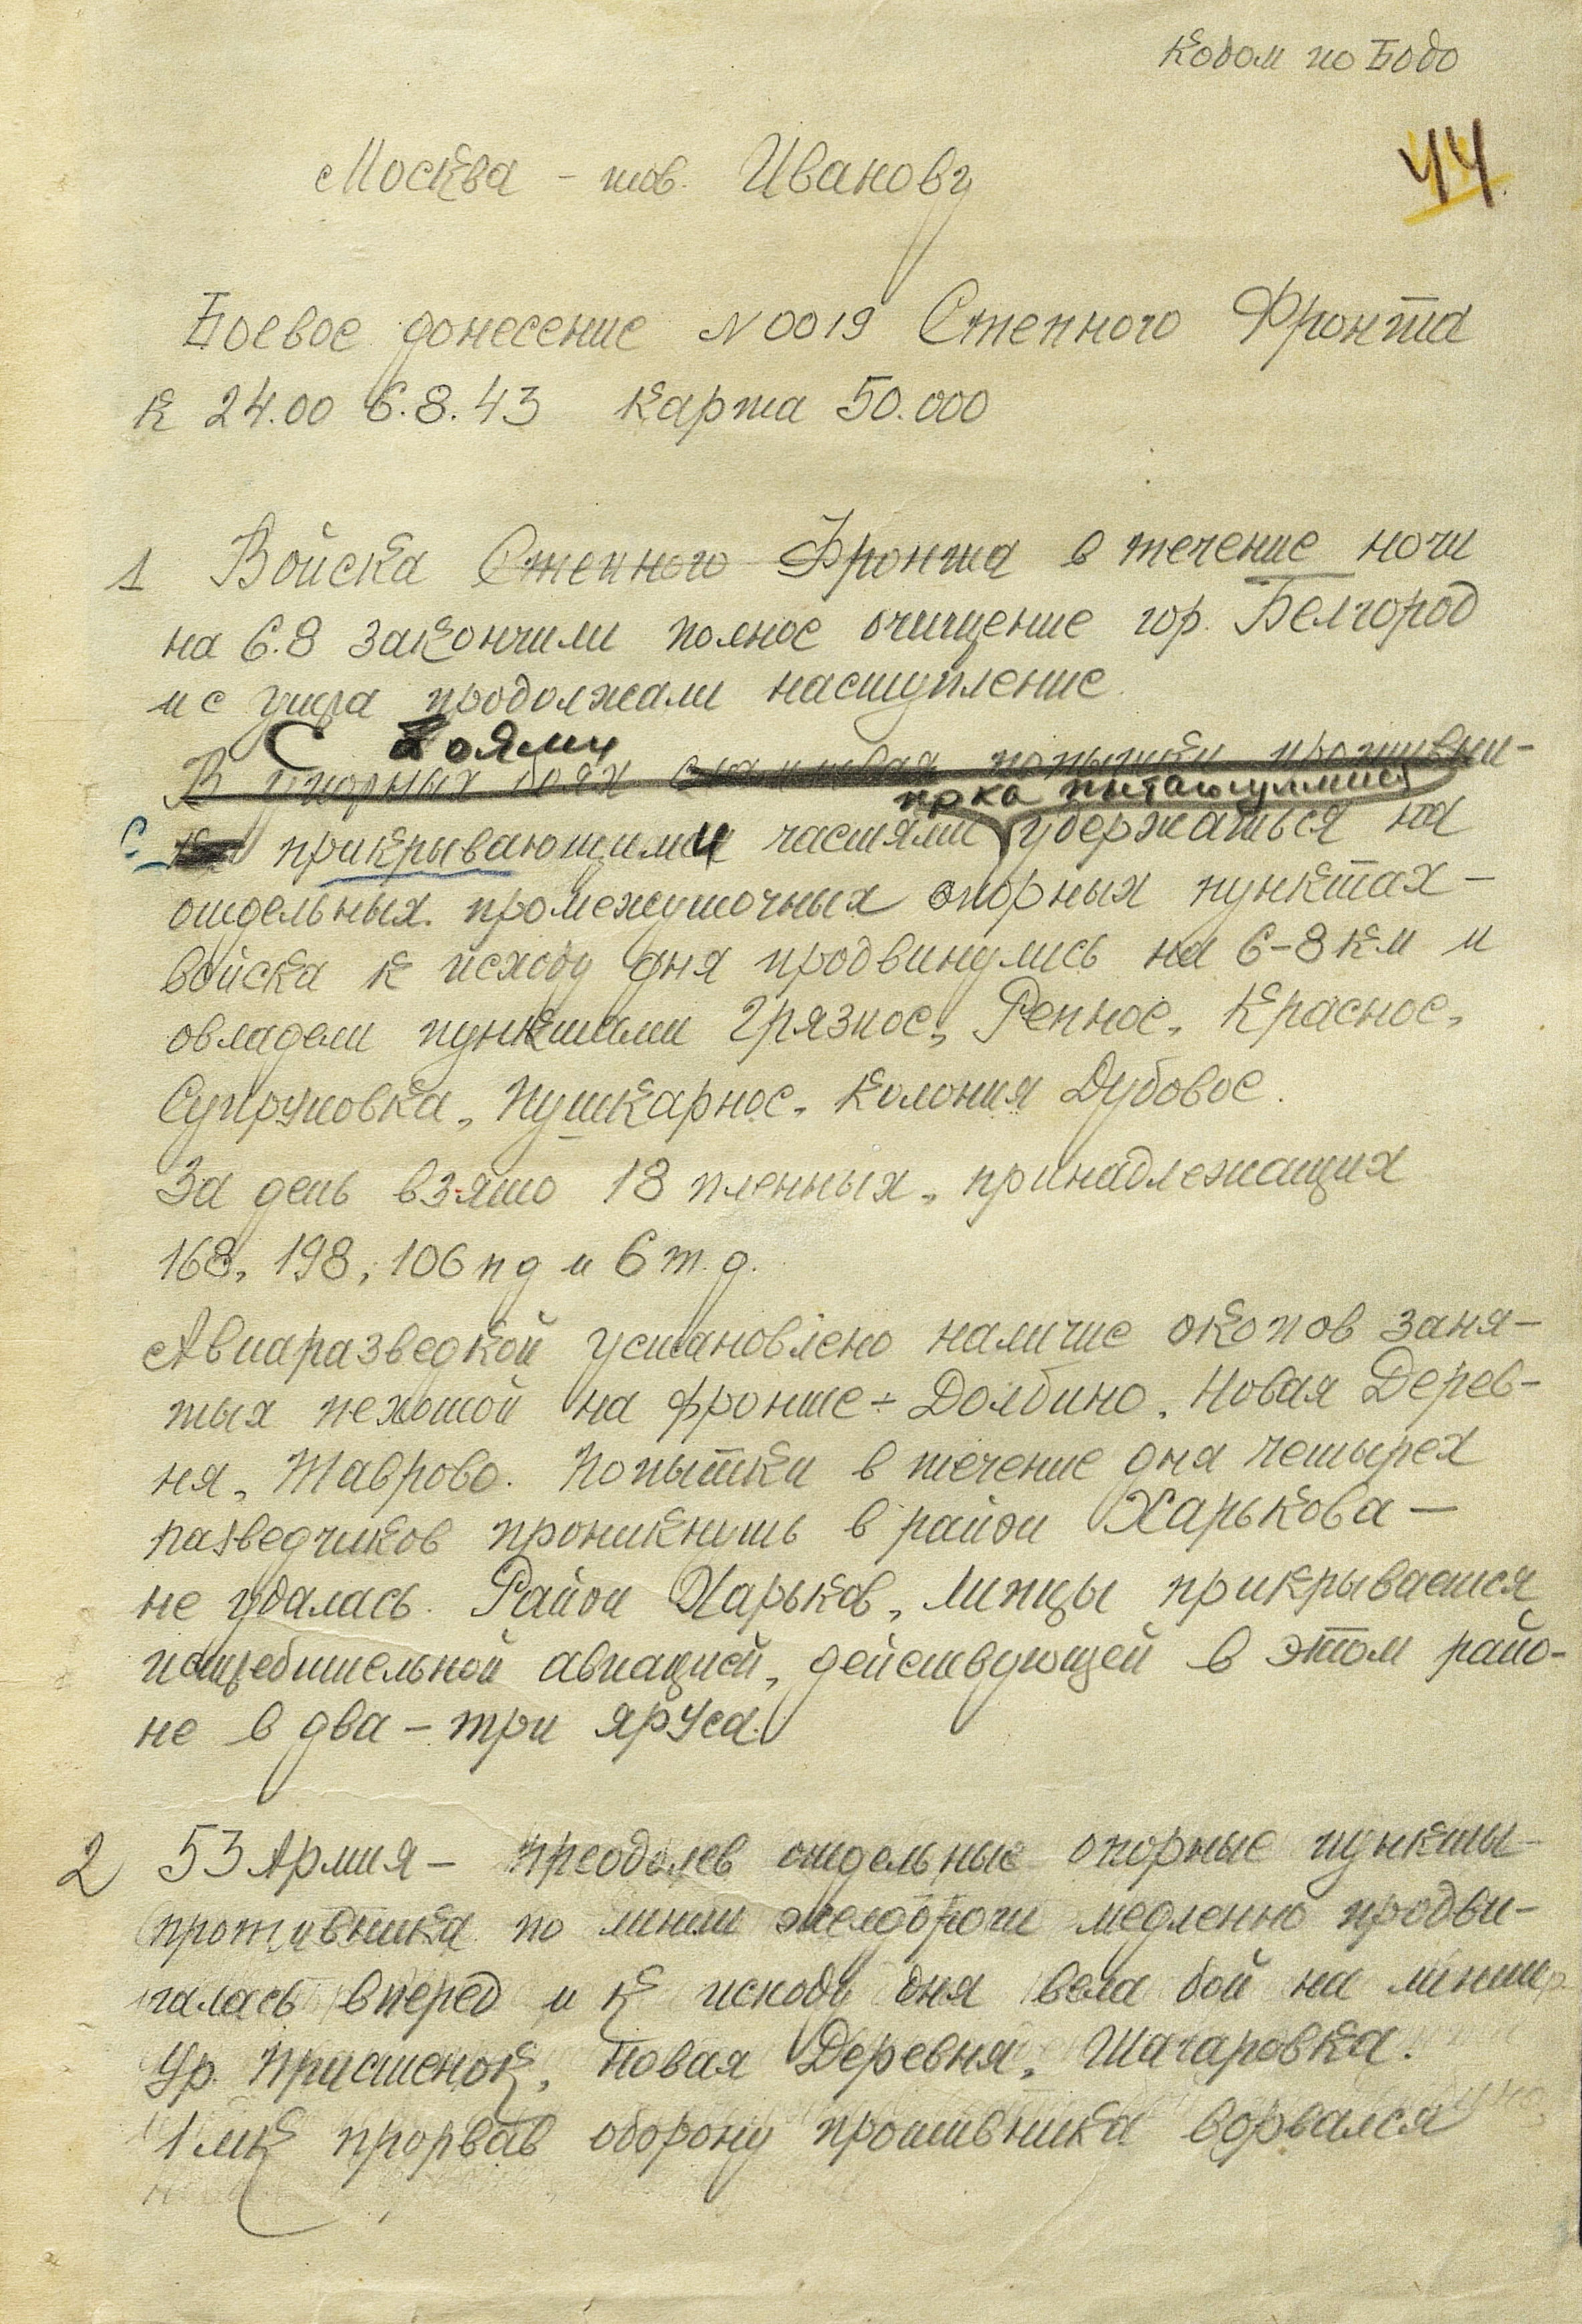 Кодом по Бодо
44
Москва – тов. Иванову
Боевое донесение N 0019 Степного Фронта
к 24.00 6.8.43 карта 50.000
1 Войска Степного Фронта в течение ночи
на 6.8 закончили полное очищение гор. Белгород
и с утра продолжали наступление
С боями
В упорных боях попытки противни-
пока пытающимися
с прикрывающими частями удержаться на
отдельных промежуточных опорных пунктах –
войска к исходу дня продвинулись на 6–8 км и
овладели пунктами Грязное, Репное, Красное,
Супруновка, Пушкарное, Колония Дубовое.
За день взято 18 пленных, принадлежащих
168, 198, 106 пд и 6 т.д.
Авиаразведкой установлено наличие окопов заня-
тых пехотой на фронте ÷ Долбино, Новая Дерев-
ня, Таврово. Попытки в течение дня четырех
разведчиков проникнуть в район Харькова –
не удалась. Район Харьков, Липцы прикрывается
истребительной авиацией, действующей в этом райо-
не в два – три яруса.
2 53 Армия – преодолев отдельные опорные пункты
противника по линии желдороги медленно продви-
галась вперед и к исходу дня вела бой на линии
Ур. Пристенок, Новая Деревня, Шагаровка.
1 мк прорвав оборону противника ворвался